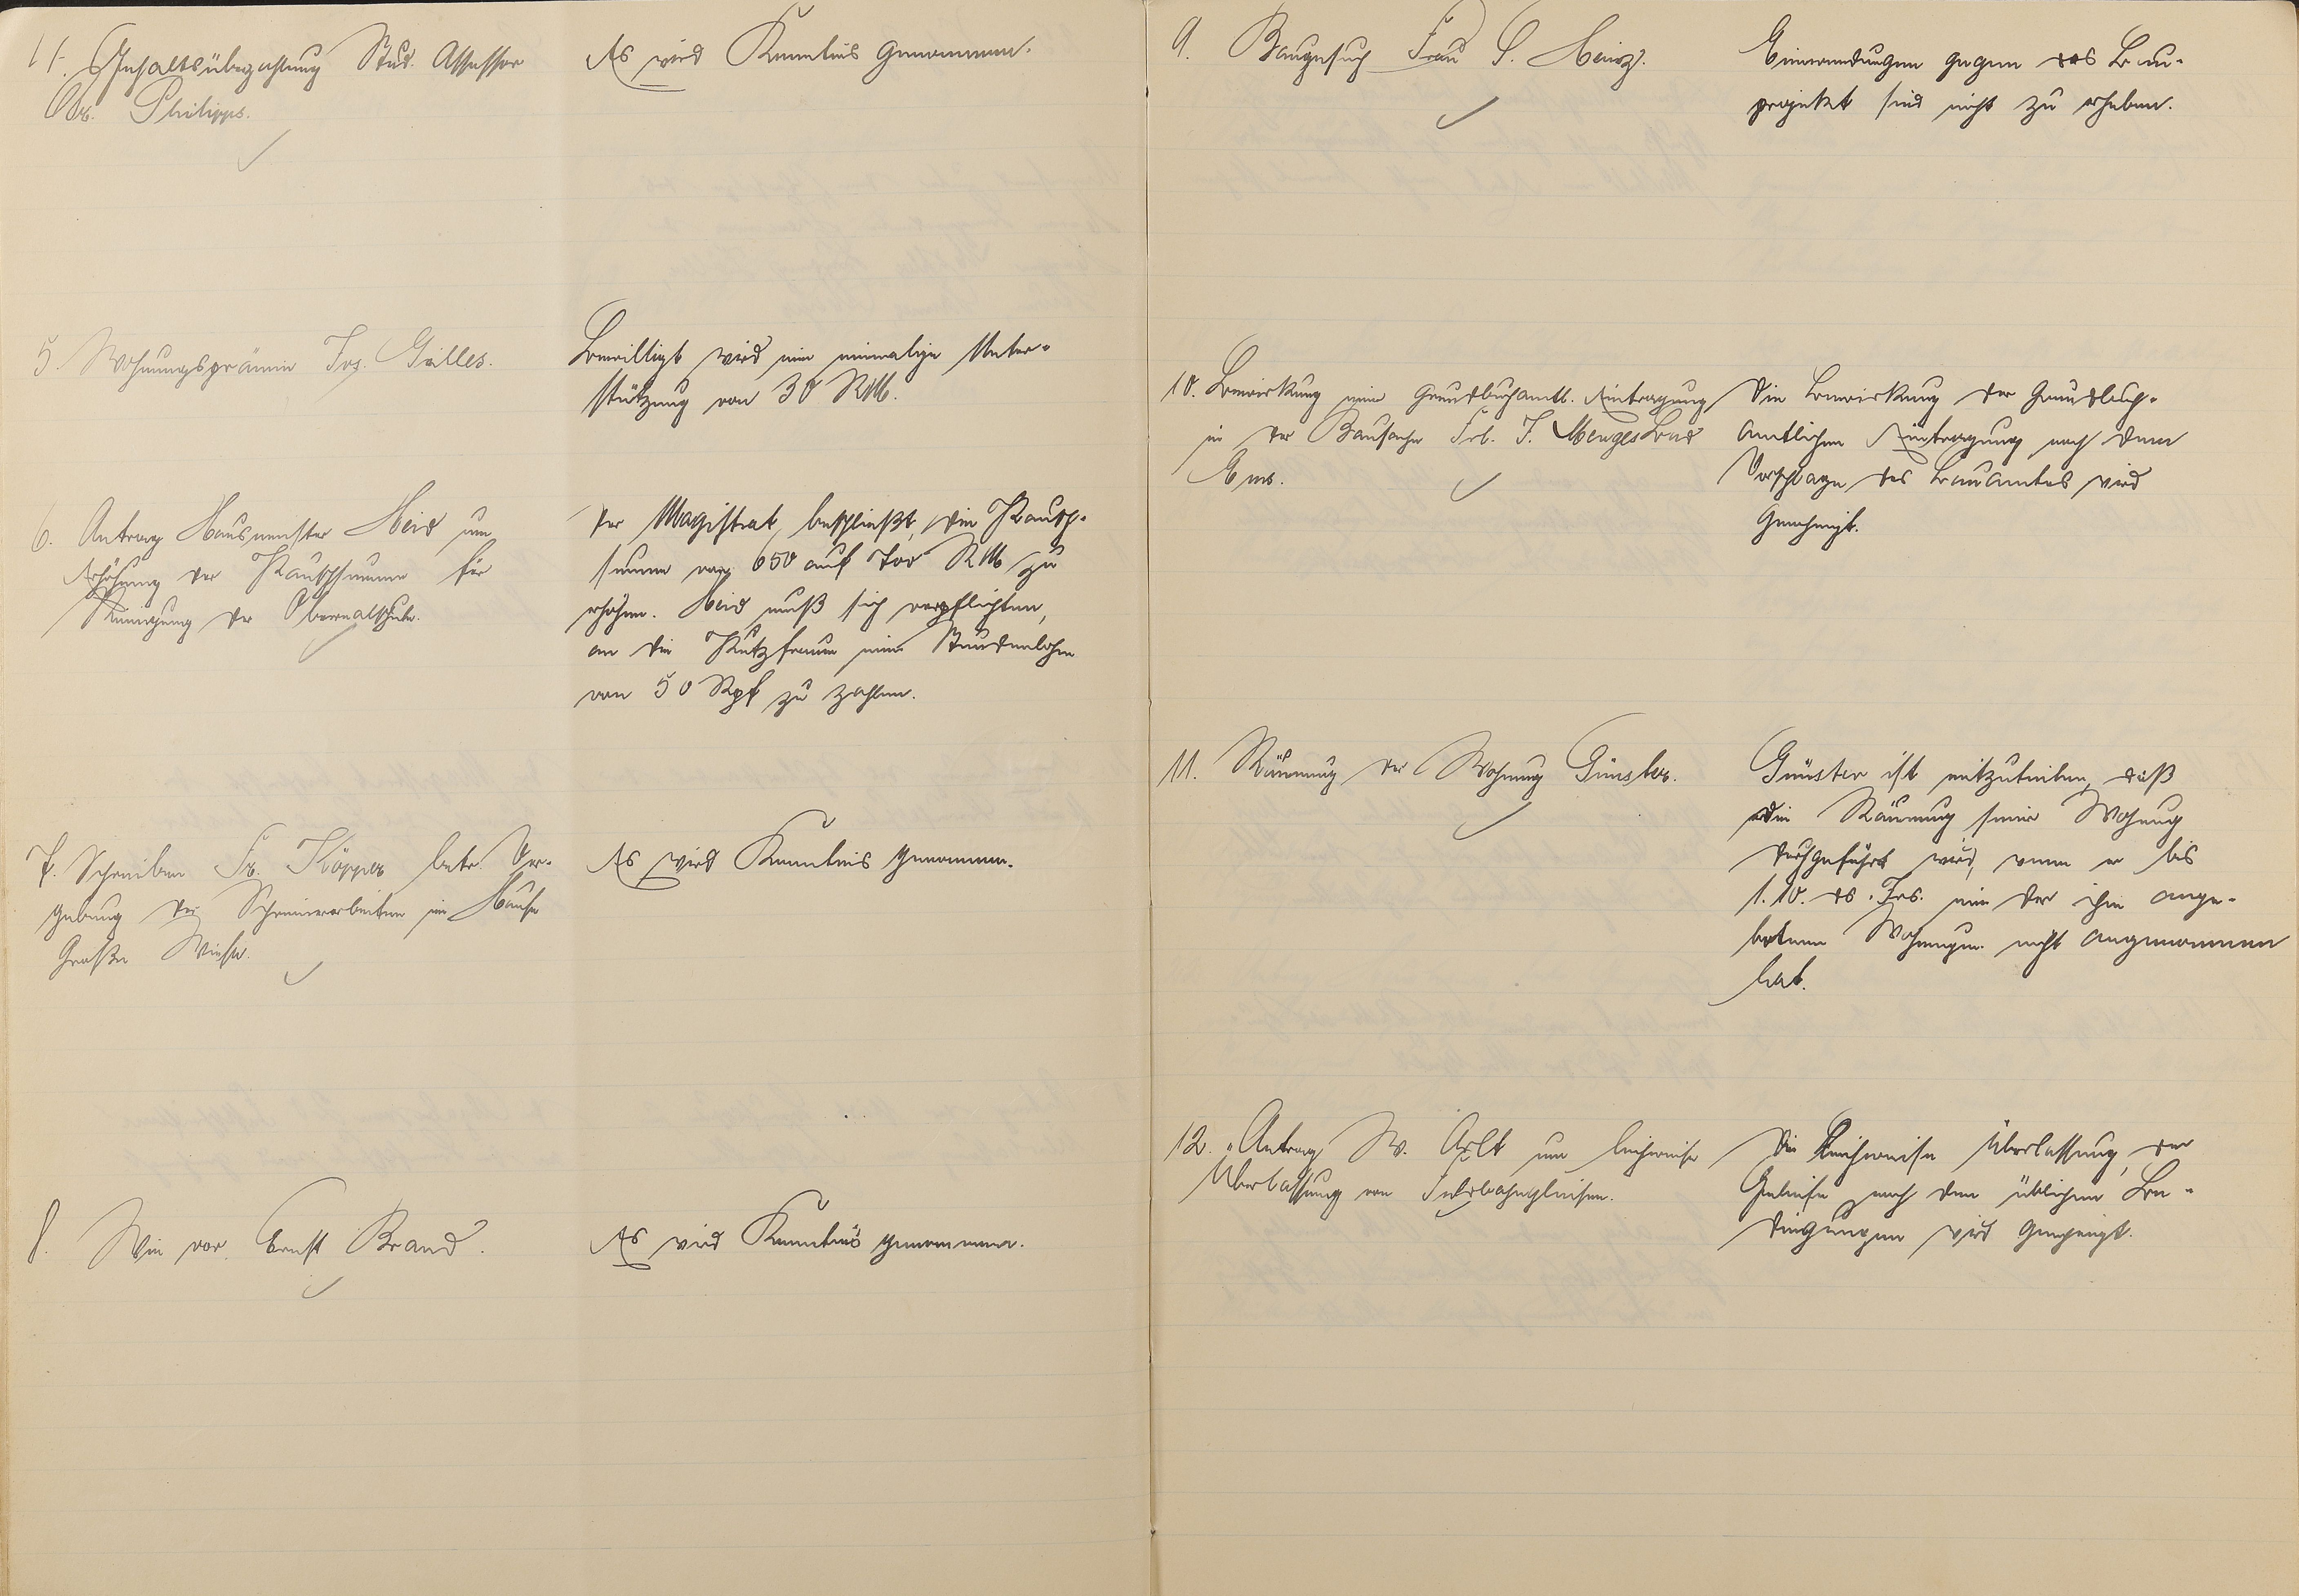 4. Gehaltsüberzahlung Stud. Assessor
Dr. Philipps.
Es wird Kenntnis genommen.
5. Wohnungsprämie Jos. Gilles.
Bewilligt wird eine einmalige Unter-
stützung von 30 RM.
6. Antrag Hausmeister Heid um
Erhöhung der Pauschsumme für
Reinigung der Oberrealschule.
Der Magistrat beschließt, die Pausch-
summe von 650 auf 700 RM zu
erhöhen. Heid muß sich verpflichten,
an die Putzfrauen einen Stundenlohn
von 50 Rpf zu zahlen.
7. Schreiben Fr. Köpper betr. Ver-
gebung der Schreinerarbeiten im Hause
Große Wiese.
Es wird Kenntnis genommen.
8. Wie vor Ernst Brand.
Es wird Kenntnis genommen.
9. Baugesuch Frau S. Heinz.
Einwendungen gegen das Bau-
projekt sind nicht zu erheben.
10. Bewirkung einer grundbuchamtl. Eintragung
in der Bausache Frl. J. Menges Bad
Ems.
Die Bewirkung der grundbuch-
amtlichen Eintragung nach dem
Vorschlage des Bauamtes wird
genehmigt.
11. Räumung der Wohnung Günster.
Günster ist mitzuteilen, daß
die Räumung seiner Wohnung
durchgeführt wird, wenn er bis
1.10. ds. Jrs. eine der ihm ange-
botenen Wohnungen nicht angenommen
hat.
12. Antrag W. Arlt um leihweise
Überlassung von Feldbahngleisen.
Die leihweise Überlassung der
Geleise nach den üblichen Be-
dingungen wird genehmigt.